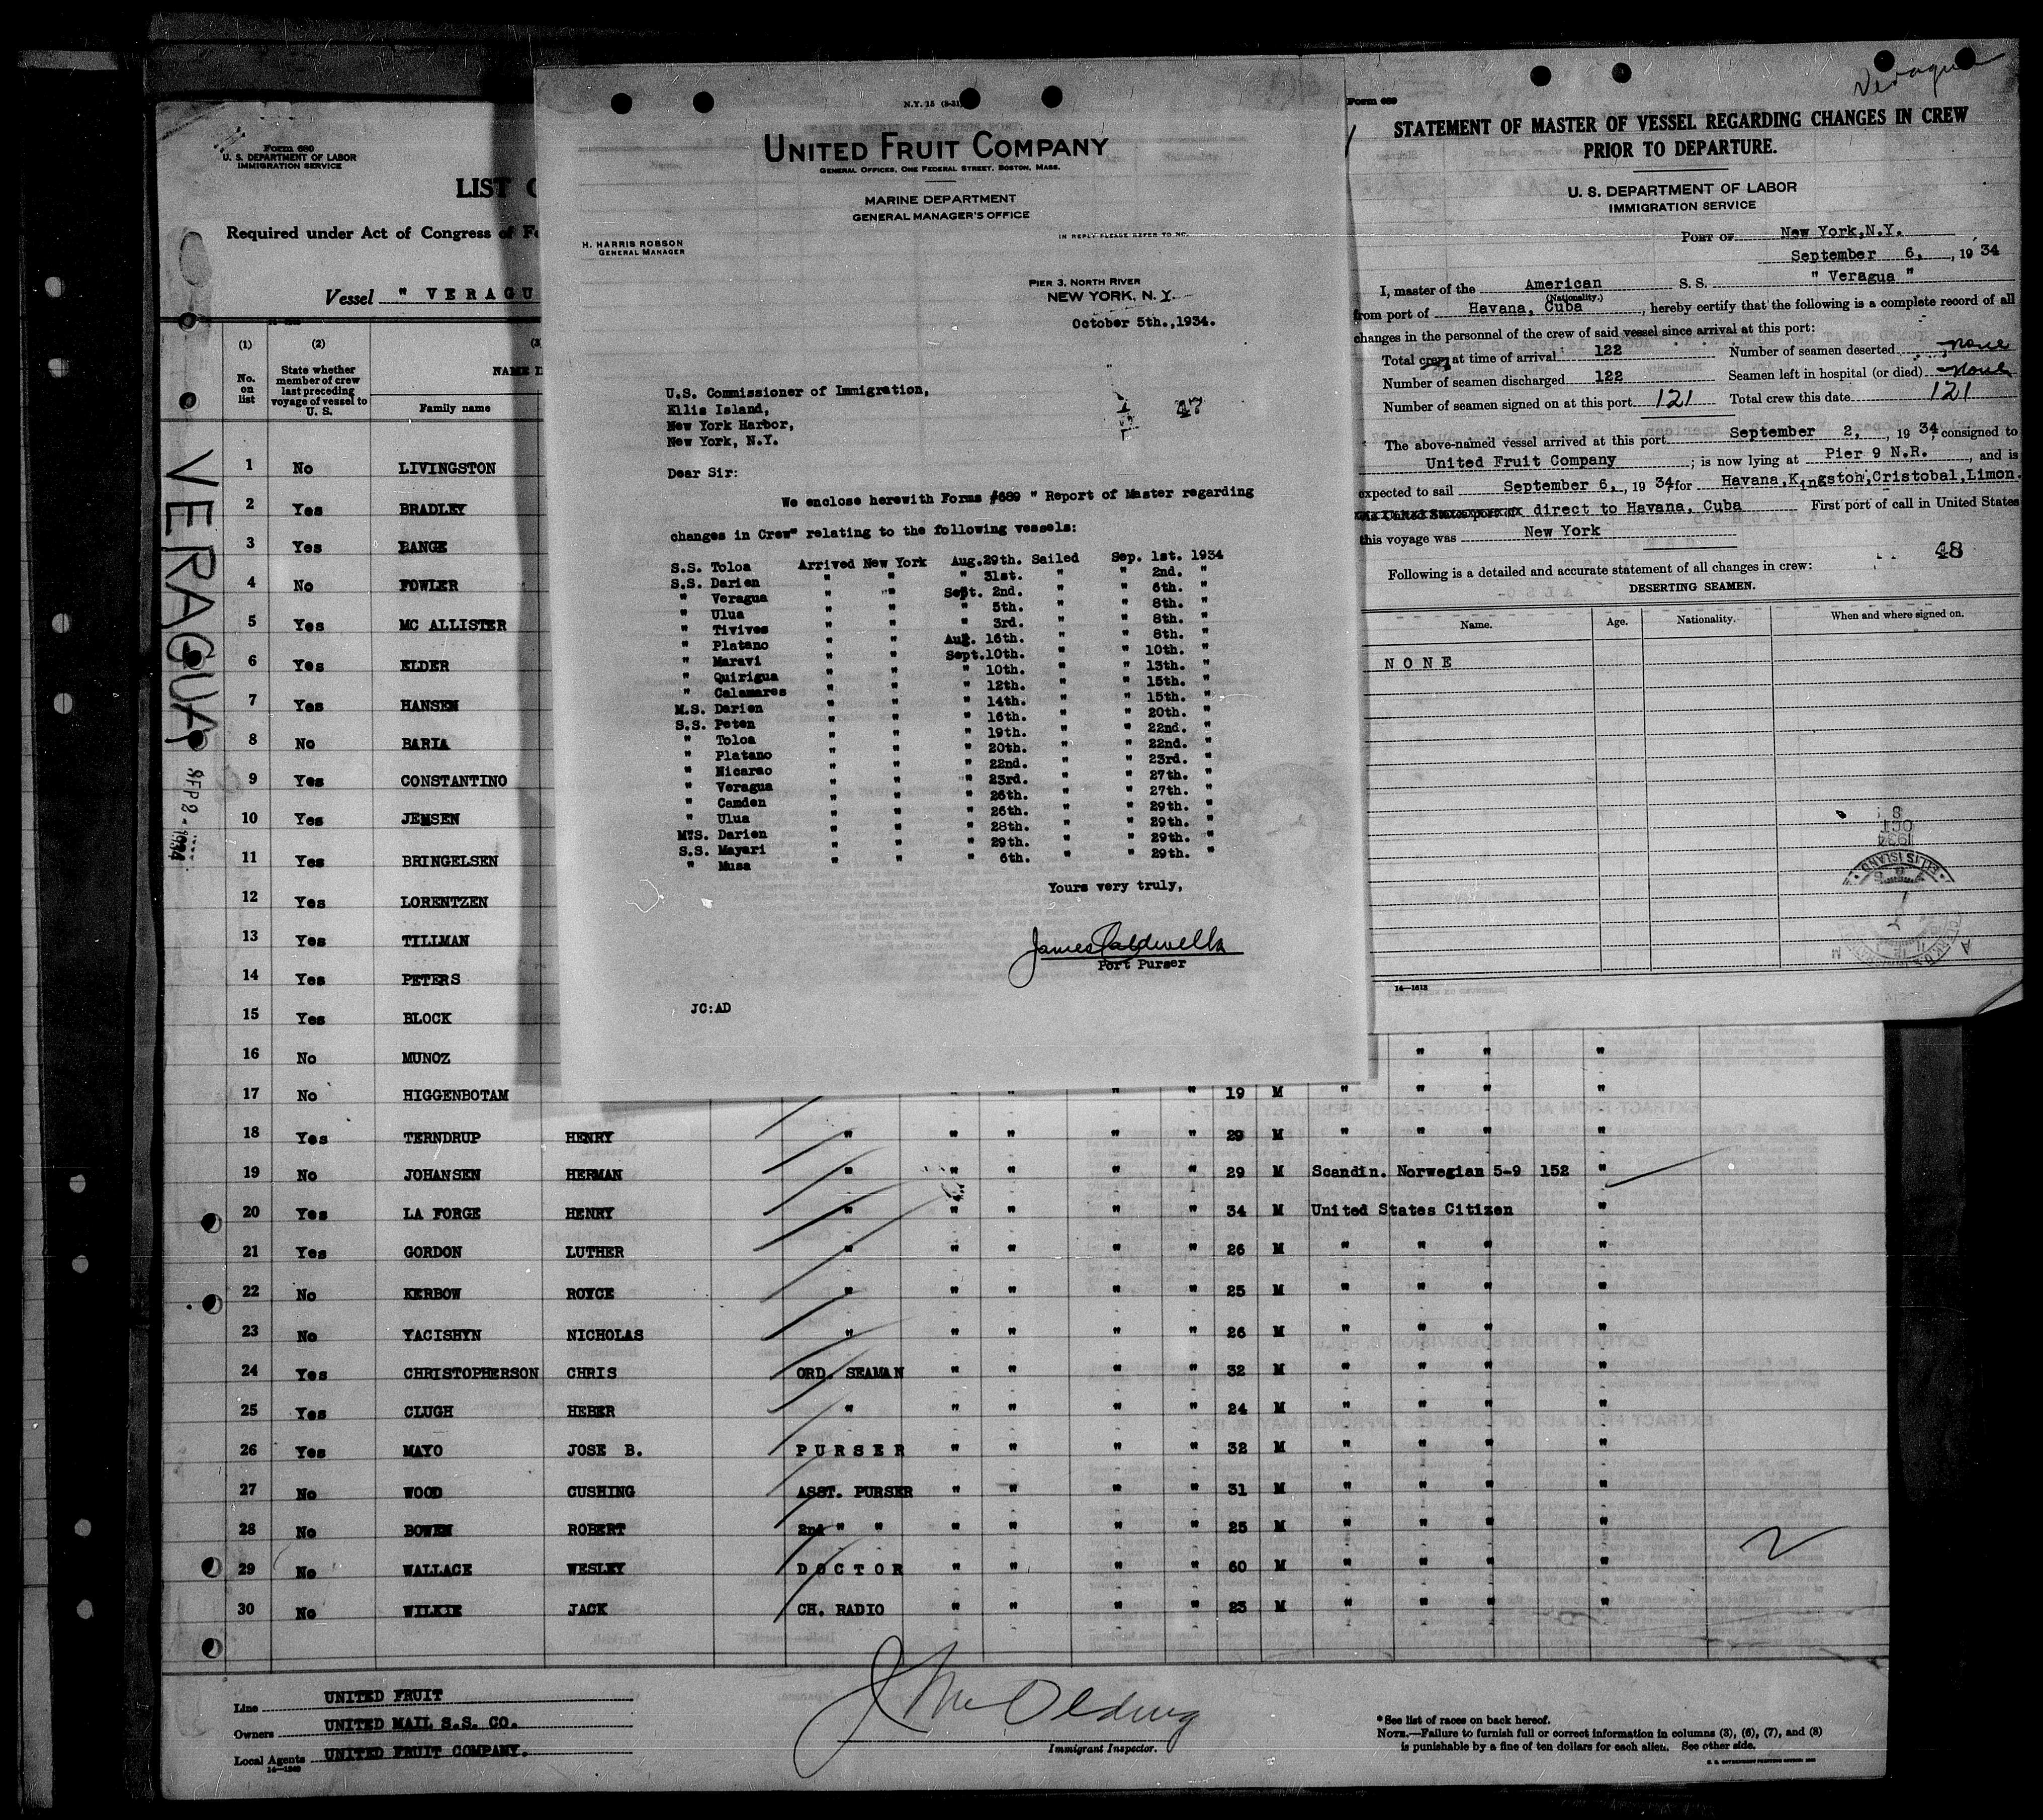 Form 680
U. S. DEPARTMENT OF LABOR
IMMIGRATION SERVICE
LIST
Required under Act of Congress of
Vessel " VERAGU
(1) (2)
No. on list
State whether member of crew last preceding voyage of vessel to U. S.
Family name
1 No LIVINGSTON
2 Yes BRADLEY
3 Yes BANGE
4 No FOWLER
5 Yes MC ALLISTER
6 Yes ELDER
7 Yes HANSEN
8 No BARIA
9 Yes CONSTANTINO
10 Yes JENSEN
11 Yes BRINGELSEN
12 Yes LORENTZEN
13 Yes TILLMAN
14 Yes PETERS
15 Yes BLOCK
16 No MUNOZ " " "
17 No HIGGENBOTAM " " " " 19 M " " " "
18 Yes TERNDRUP HENRY " " " " " 29 M " " " "
19 No JOHANSEN HERMAN " " " " " 29 M Scandin. Norwegian 5-9 152 "
20 Yes LA FORGE HENRY " " " " " 34 M United States Citizen "
21 Yes GORDON LUTHER " " " " " 26 M " " " "
22 No KERBOW ROYCE " " " " " 25 M " " " "
23 No YACISHYN NICHOLAS " " " " " 26 M " " " "
24 Yes CHRISTOPHERSON CHRIS ORD. SEAMAN " " " " 32 M " " " "
25 Yes CLUGH HEBER " " " " " 24 M " " " "
26 Yes MAYO JOSE B. PURSER " " " " 32 M " " " "
27 No WOOD CUSHING ASST. PURSER " " " " 31 M " " " "
28 No BOWEN ROBERT 2nd " " " " " " 25 M " " " "
29 No WALLACE WESLEY DOCTOR " " " " 60 M " " " "
30 No WILKIE JACK CH. RADIO " " " " 23 M " " " "
2
Line UNITED FRUIT
Owners UNITED MAIL S.S. CO.
Local Agents UNITED FRUIT COMPANY.
14-1240
Immigrant Inspector.
*See list of races on back hereof.
NOTE.—Failure to furnish full or correct information in columns (3), (6), (7), and (8)
is punishable by a fine of ten dollars for each alien. See other side.
VERAGUA
SEP 2 - 1934
N.Y. 15 (8-31)
UNITED FRUIT COMPANY
GENERAL OFFICES, ONE FEDERAL STREET, BOSTON, MASS.
MARINE DEPARTMENT
GENERAL MANAGER'S OFFICE
H. HARRIS ROBSON
GENERAL MANAGER
IN REPLY PLEASE REFER TO NO.
PIER 3, NORTH RIVER
NEW YORK, N. Y.
October 5th.,1934.
U.S. Commissioner of Immigration,
Ellis Island,
New York Harbor,
New York, N.Y.
47
Dear Sir:
We enclose herewith Forms #689 " Report of Master regarding
changes in Crew" relating to the following vessels:
S.S. Toloa Arrived New York Aug.29th. Sailed Sep. 1st. 1934
S.S. Darien " " " 31st. " " 2nd. "
" Veragua " " Sept. 2nd. " " 6th. "
" Ulua " " " 5th. " " 8th. "
" Tivives " " " 3rd. " " 8th. "
" Platano " " Aug. 16th. " " 8th. "
" Maravi " " Sept.10th. " " 10th. "
" Quirigua " " " 10th. " " 13th. "
" Calamares " " " 12th. " " 15th. "
M.S. Darien " " " 14th. " " 15th. "
S.S. Peten " " " 16th. " " 20th. "
" Toloa " " " 19th. " " 22nd. "
" Platano " " " 20th. " " 22nd. "
" Nicarao " " " 22nd. " " 23rd. "
" Veragua " " " 23rd. " " 27th. "
" Camden " " " 26th. " " 27th. "
" Ulua " " " 26th. " " 29th. "
M.S. Darien " " " 28th. " " 29th. "
S.S. Mayari " " " 29th. " " 29th. "
" Musa " " " 6th. " " 29th. "
Yours very truly,
James Caldwell
Port Purser
JC:AD
Form 689
Veragua
STATEMENT OF MASTER OF VESSEL REGARDING CHANGES IN CREW
PRIOR TO DEPARTURE.
U. S. DEPARTMENT OF LABOR
IMMIGRATION SERVICE
PORT OF New York,N.Y.
September 6, , 19 34
I, master of the American S. S. " Veragua "
(Nationality.)
from port of Havana, Cuba , hereby certify that the following is a complete record of all
changes in the personnel of the crew of said vessel since arrival at this port:
Total crew at time of arrival 122 Number of seamen deserted none
Number of seamen discharged 122 Seamen left in hospital (or died) none
Number of seamen signed on at this port 121 Total crew this date 121
The above-named vessel arrived at this port September 2, , 19 34, consigned to
United Fruit Company ; is now lying at Pier 9 N.R. , and is
expected to sail September 6, , 19 34, for Havana,Kingston,Cristobal,Limon.
direct to Havana, Cuba First port of call in United States
this voyage was New York
48
Following is a detailed and accurate statement of all changes in crew:
DESERTING SEAMEN.
Name. Age. Nationality. When and where signed on.
NONE
8
OCT
1934
ELLIS ISLAND
14—1613